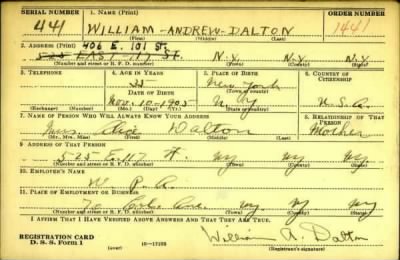 SERIAL NUMBER 1. NAME (Print) ORDER NUMBER
441 WILLIAM - ANDREW - DALTON 1441
(First) (Middle) (Last)
2. ADDRESS (Print) 406 E. 101 St.
525 EAST 117 ST. N.Y. N.Y.
(Number and street or R. F. D. number) (Town) (County) (State)
3. TELEPHONE 4. AGE IN YEARS 5. PLACE OF BIRTH 6. COUNTRY OF CITIZENSHIP
New York
DATE OF BIRTH (Town or county)
Nov. 10 - 1905 N.Y. U.S.A.
(Exchange) (Number) (Mo.) (Day) (Yr.) (State or country)
7. NAME OF PERSON WHO WILL ALWAYS KNOW YOUR ADDRESS 8. RELATIONSHIP OF THAT PERSON
Mrs. Dalton Mother
(Mr., Mrs., Miss) (First) (Middle) (Last)
9. ADDRESS OF THAT PERSON
525 E. 117 St. NY NY NY
(Number and street or R. F. D. number) (Town) (County) (State)
10. EMPLOYER'S NAME
W. P. A.
11. PLACE OF EMPLOYMENT OR BUSINESS
70 Col. Ave. NY NY NY
(Number and street or R. F. D. number) (Town) (County) (State)
I AFFIRM THAT I HAVE VERIFIED ABOVE ANSWERS AND THAT THEY ARE TRUE.
REGISTRATION CARD
D. S. S. Form 1 (over) 16-17105 William A. Dalton
(Registrant's signature)